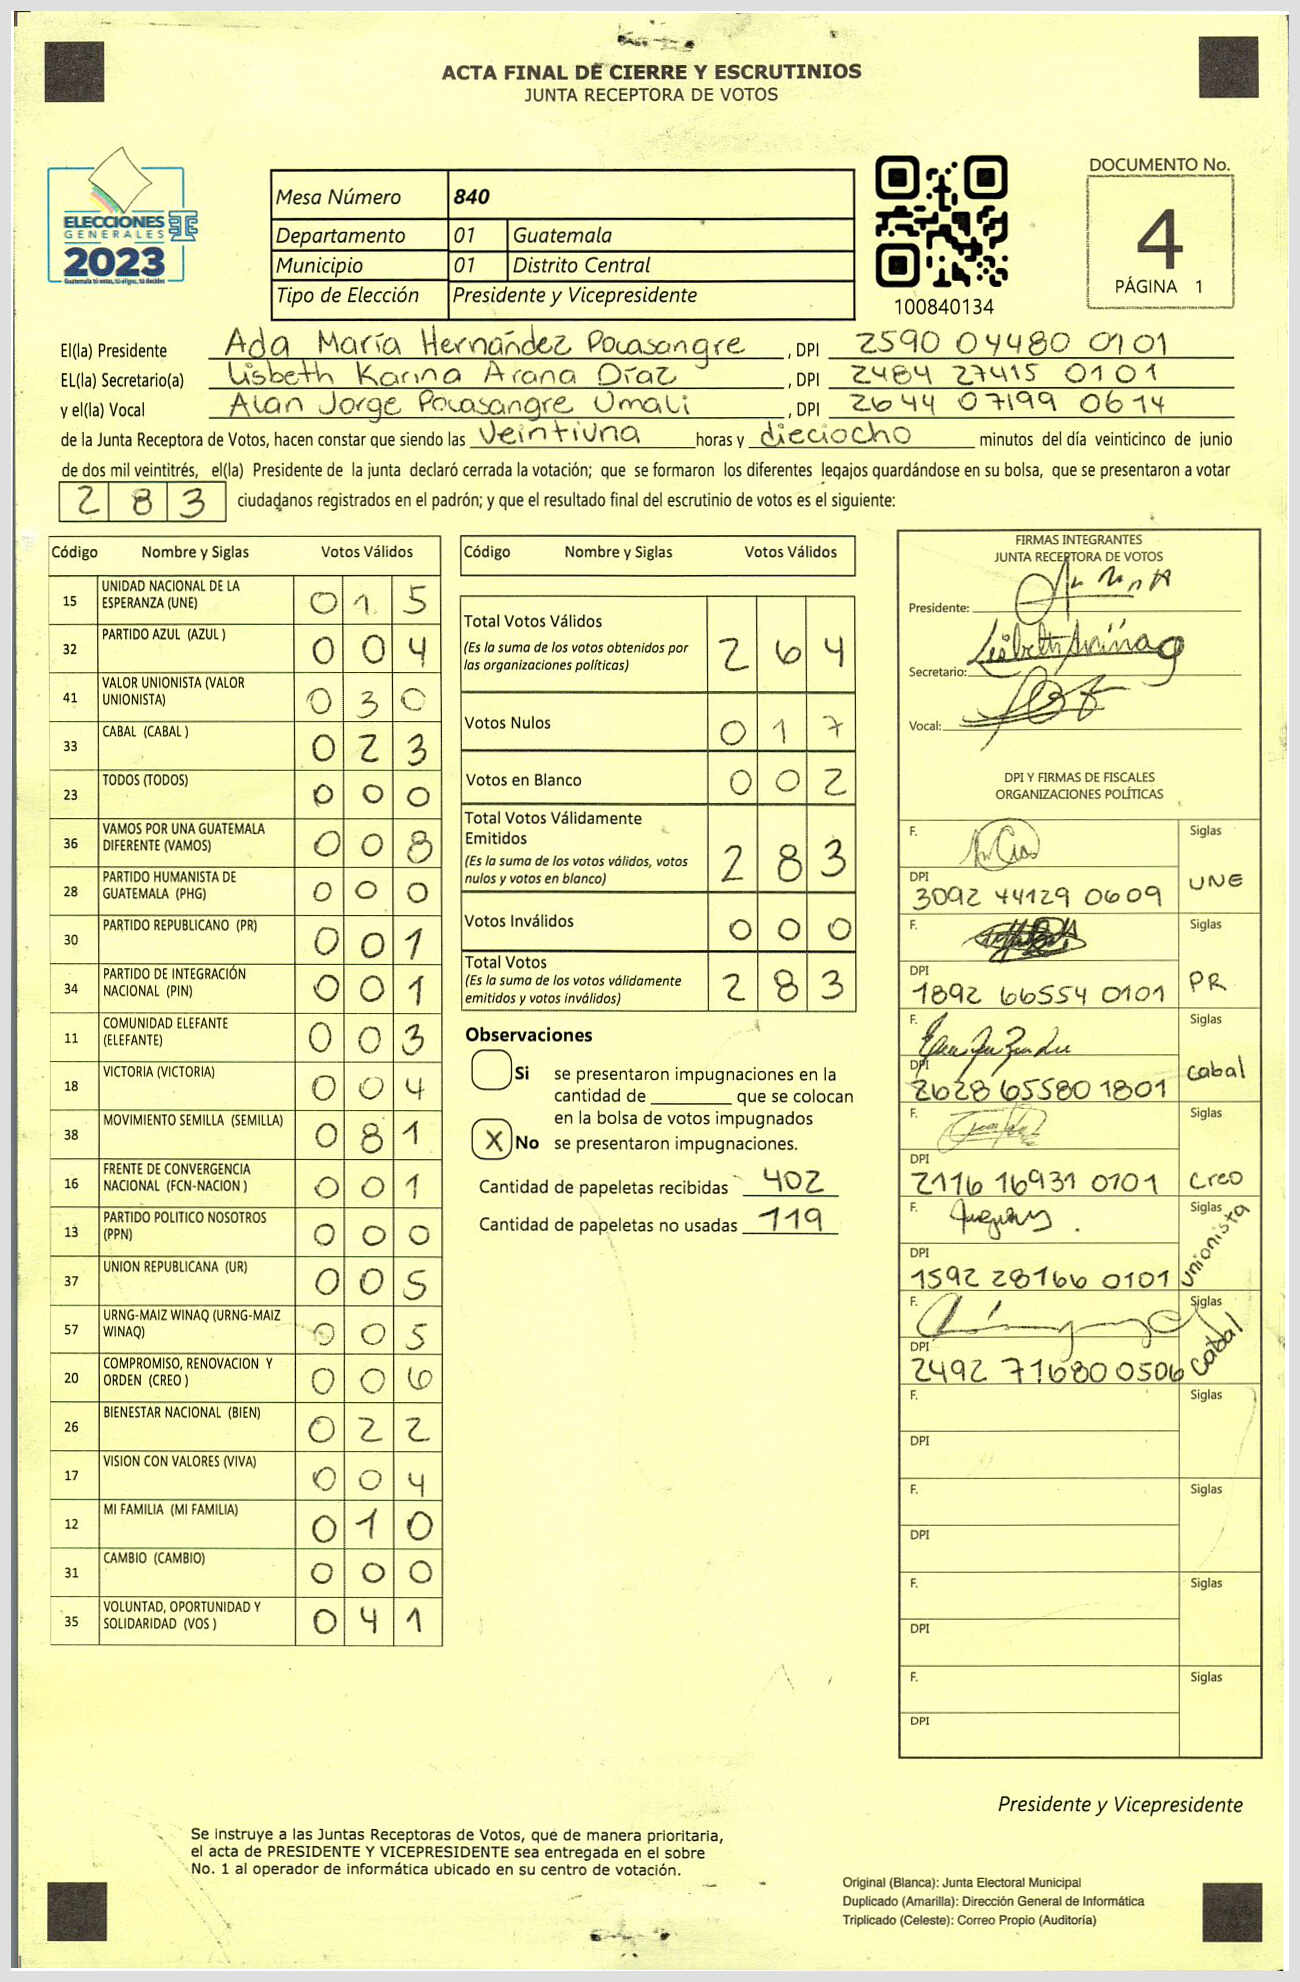 ACTA FINAL DE CIERRE Y ESCRUTINIOS
JUNTA RECEPTORA DE VOTOS
ELECCIONES
GENERALES
2023
Guatemala tú votas, tú eliges, tú decides
Mesa Número 840
Departamento 01 Guatemala
Municipio 01 Distrito Central
Tipo de Elección Presidente y Vicepresidente
100840134
DOCUMENTO No.
4
PÁGINA 1
El(la) Presidente Ada María Hernández Pocasangre, DPI 2590 04480 0101
EL(la) Secretario(a) Lisbeth Karina Arana Díaz, DPI 2484 27415 0101
y el(la) Vocal Alan Jorge Pocasangre Umali, DPI 2644 07199 0614
de la Junta Receptora de Votos, hacen constar que siendo las veintiuna horas y dieciocho minutos del día veinticinco de junio
de dos mil veintitrés, el(la) Presidente de la junta declaró cerrada la votación; que se formaron los diferentes legajos guardándose en su bolsa, que se presentaron a votar
283 ciudadanos registrados en el padrón; y que el resultado final del escrutinio de votos es el siguiente:
Código Nombre y Siglas Votos Válidos
15 UNIDAD NACIONAL DE LA ESPERANZA (UNE) 015
32 PARTIDO AZUL (AZUL ) 004
41 VALOR UNIONISTA (VALOR UNIONISTA) 030
33 CABAL (CABAL ) 023
23 TODOS (TODOS) 000
36 VAMOS POR UNA GUATEMALA DIFERENTE (VAMOS) 008
28 PARTIDO HUMANISTA DE GUATEMALA (PHG) 000
30 PARTIDO REPUBLICANO (PR) 001
34 PARTIDO DE INTEGRACIÓN NACIONAL (PIN) 001
11 COMUNIDAD ELEFANTE (ELEFANTE) 003
18 VICTORIA (VICTORIA) 004
38 MOVIMIENTO SEMILLA (SEMILLA) 081
16 FRENTE DE CONVERGENCIA NACIONAL (FCN-NACION ) 001
13 PARTIDO POLITICO NOSOTROS (PPN) 000
37 UNION REPUBLICANA (UR) 005
57 URNG-MAIZ WINAQ (URNG-MAIZ WINAQ) 005
20 COMPROMISO, RENOVACION Y ORDEN (CREO ) 006
26 BIENESTAR NACIONAL (BIEN) 022
17 VISION CON VALORES (VIVA) 004
12 MI FAMILIA (MI FAMILIA) 010
31 CAMBIO (CAMBIO) 000
35 VOLUNTAD, OPORTUNIDAD Y SOLIDARIDAD (VOS ) 041
Código Nombre y Siglas Votos Válidos
Total Votos Válidos 264
(Es la suma de los votos obtenidos por
las organizaciones políticas)
Votos Nulos 017
Votos en Blanco 002
Total Votos Válidamente
Emitidos 283
(Es la suma de los votos válidos, votos
nulos y votos en blanco)
Votos Inválidos 000
Total Votos 283
(Es la suma de los votos válidamente
emitidos y votos inválidos)
Observaciones
Si se presentaron impugnaciones en la
cantidad de ________ que se colocan
en la bolsa de votos impugnados
X No se presentaron impugnaciones.
Cantidad de papeletas recibidas 402
Cantidad de papeletas no usadas 119
FIRMAS INTEGRANTES
JUNTA RECEPTORA DE VOTOS
Presidente:
Secretario:
Vocal:
DPI Y FIRMAS DE FISCALES
ORGANIZACIONES POLÍTICAS
F. Siglas
DPI 3092 44129 0609 UNE
F. Siglas
DPI 1892 66554 0101 PR
F. Siglas
DPI 2628 65580 1801 Cabal
F. Siglas
DPI 2116 16931 0101 Creo
F. Siglas
DPI 1592 28166 0101 Unionista
F. Siglas
DPI 2492 71680 0506 Cabal
F. Siglas
DPI
F. Siglas
DPI
F. Siglas
DPI
F. Siglas
DPI
Presidente y Vicepresidente
Se instruye a las Juntas Receptoras de Votos, que de manera prioritaria,
el acta de PRESIDENTE Y VICEPRESIDENTE sea entregada en el sobre
No. 1 al operador de informática ubicado en su centro de votación.
Original (Blanca): Junta Electoral Municipal
Duplicado (Amarilla): Dirección General de Informática
Triplicado (Celeste): Correo Propio (Auditoría)